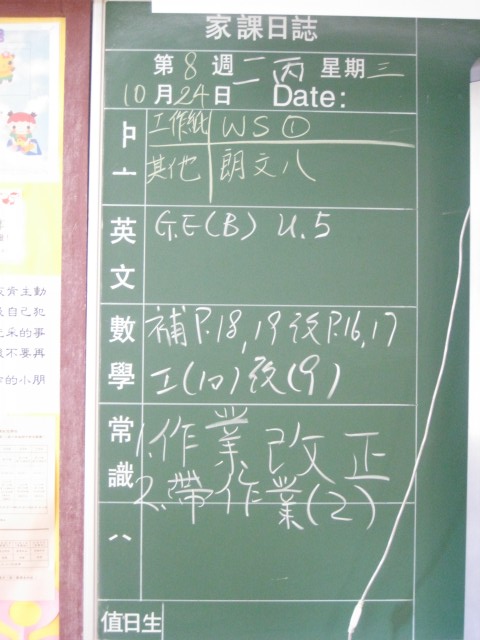 家課日誌
第8週 二丙 星期三
10月24日 Date:
工作紙 WS①
其他 朗文八
英文 G.E(B) U.5
數學 補P.18,19 改P.16,17
工(10) 改(9)
常識 1.作業改正
2.帶作業(2)
值日生
主動
自己犯
的事
不要再
的小朋